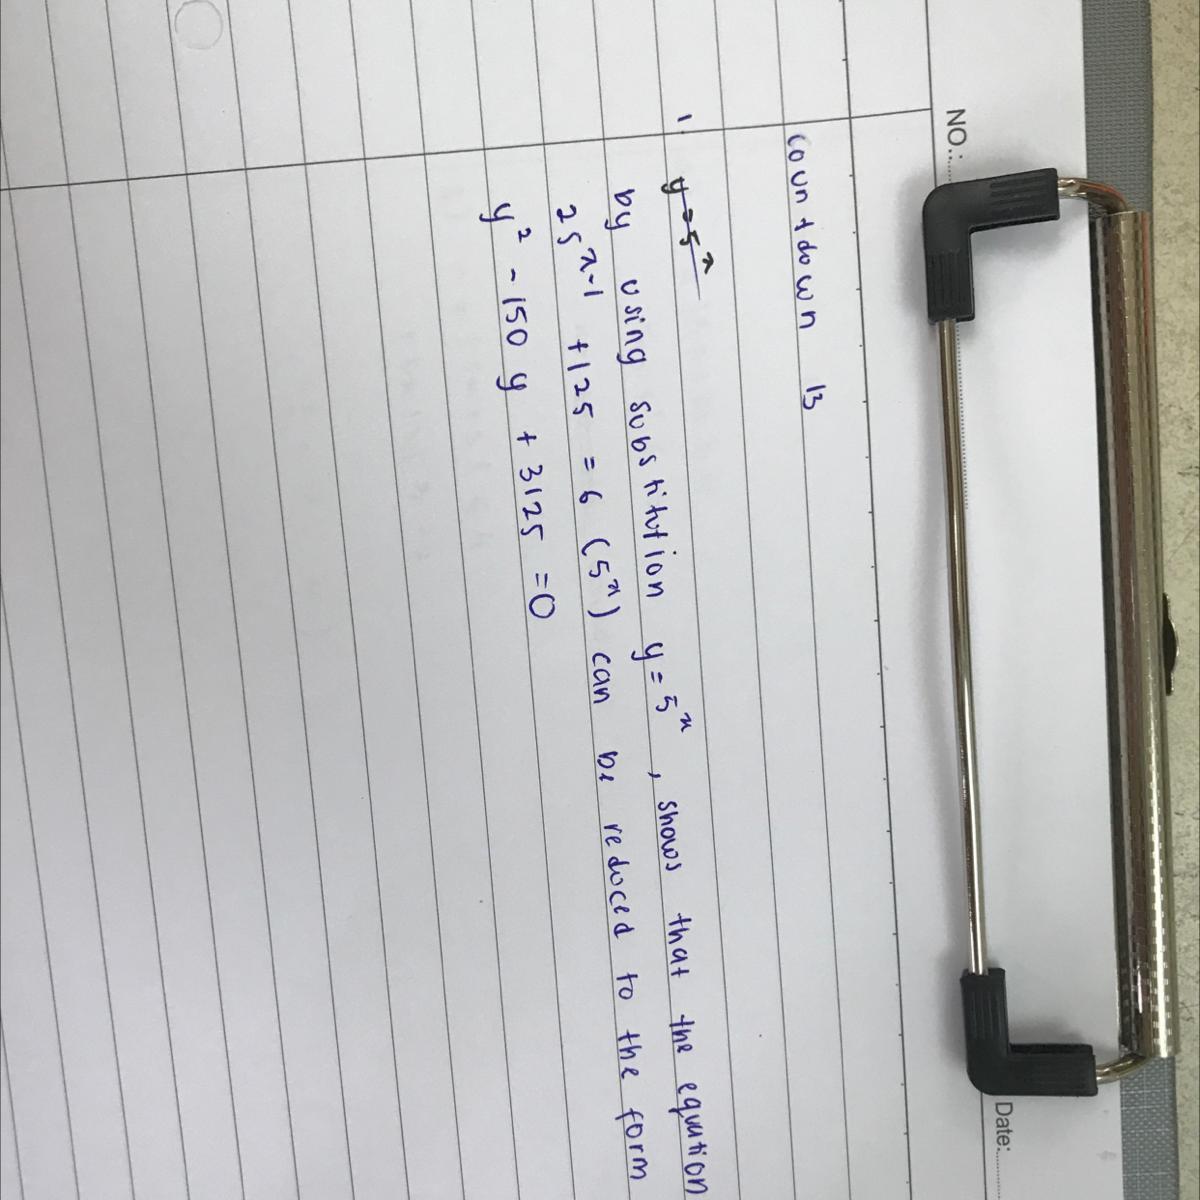 NO.:
Date:
countdown 13
1. y = 5ˣ
by using substitution y = 5ˣ, shows that the equation
25ˣ⁻¹ + 125 = 6 (5ˣ) can be reduced to the form
y² - 150 y + 3125 = 0